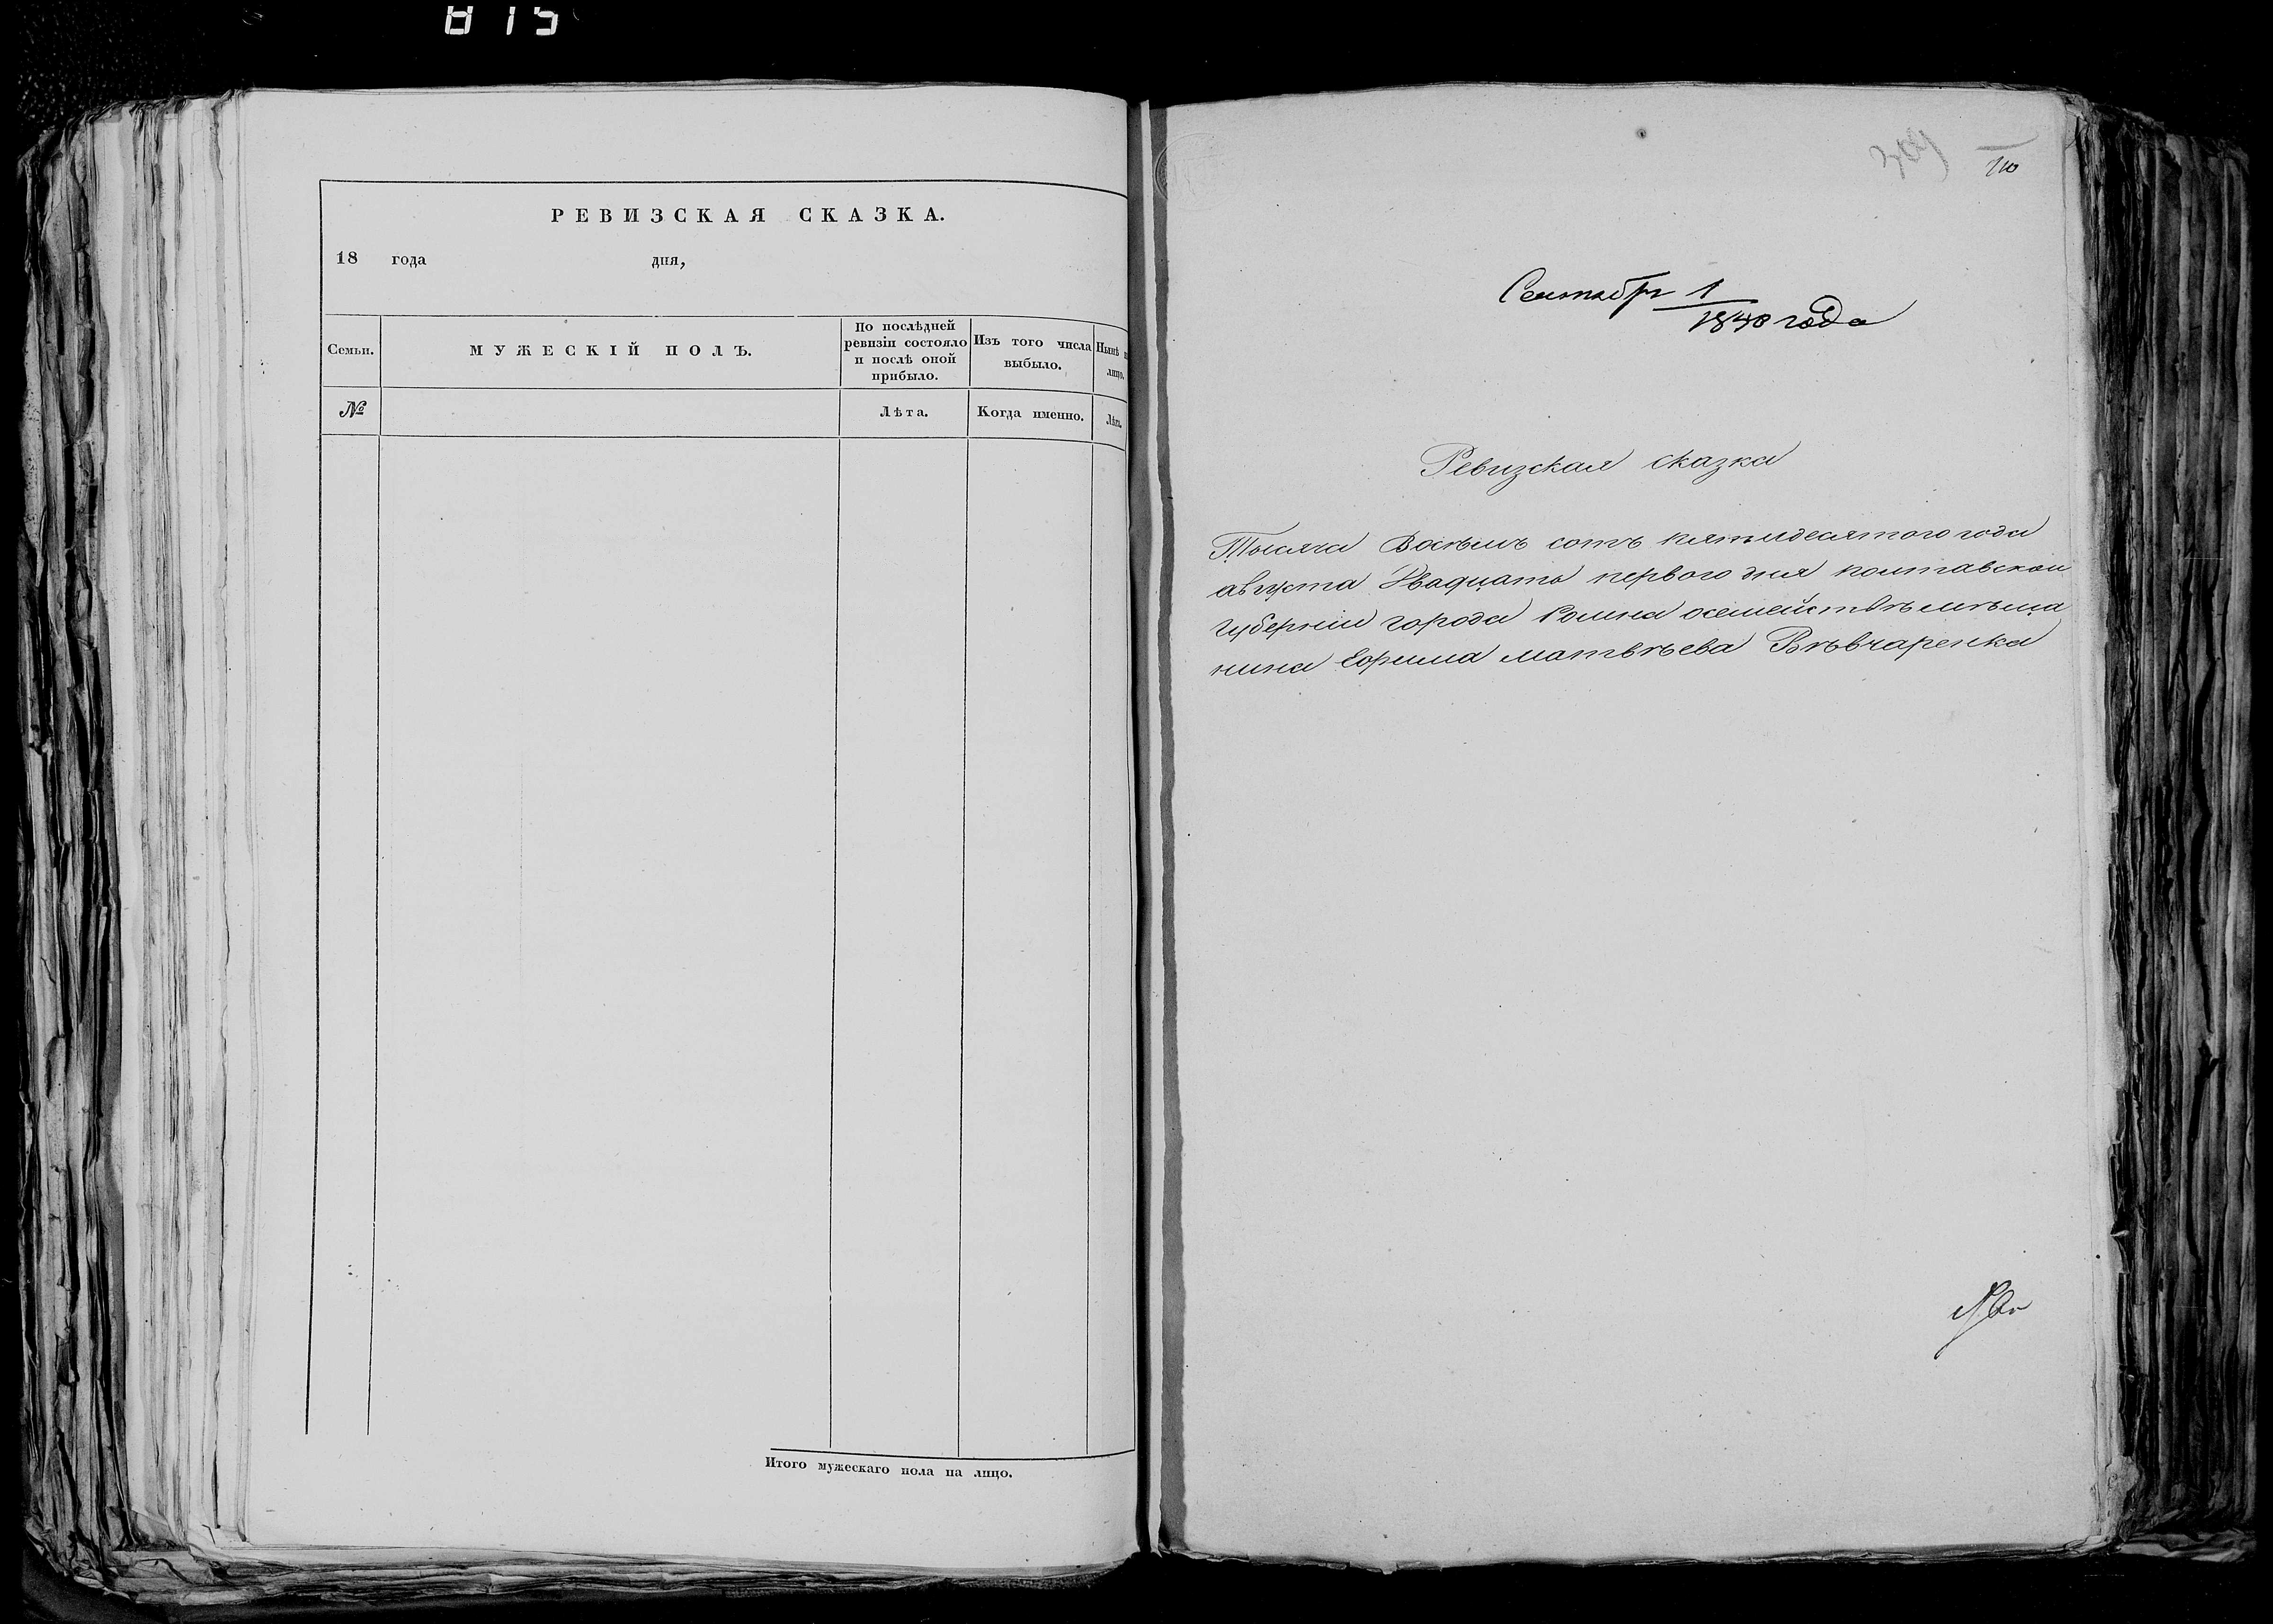 815
РЕВИЗСКАЯ СКАЗКА.
18 года дня,
Семьи.
МУЖЕСКІЙ ПОЛЪ.
По послѣдней ревизіи состояло и послѣ оной прибыло.
Изъ того числа выбыло.
Нынѣ н лицо.
№
Лѣта.
Когда именно.
Лѣта.
Итого мужескаго пола на лицо.
309
710
Сентября 1
1850 года
Ревизская сказка
Тысяча Восѣмъ сотъ пятидесятого года
августа Двадцать первого дня полтавской
губерніи города Ромна осемействѣ мѣща
нина Ефима матвѣева Вѣвчаренка